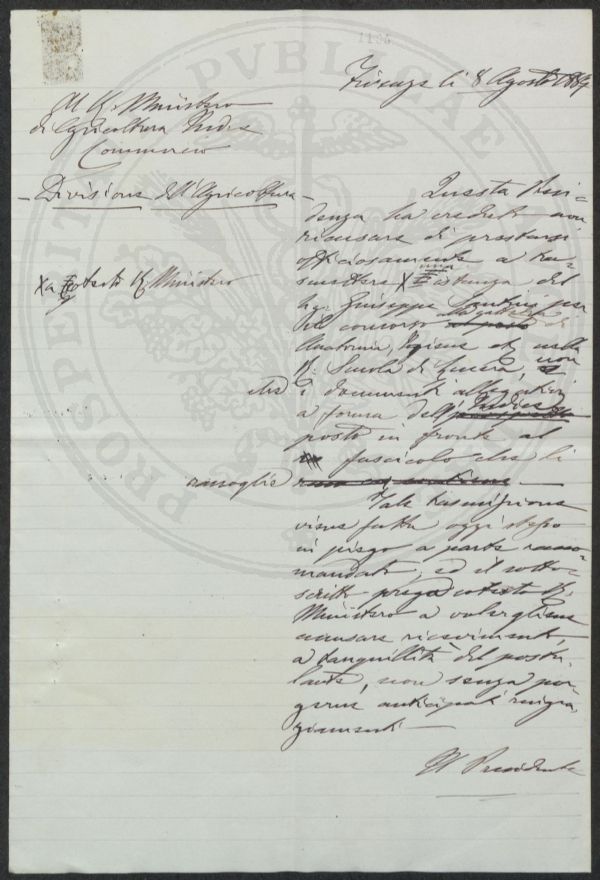 Firenze li 8 Agosto 1887
Al R. Ministero
di Agricoltura Indre
Commercio
Divisione dell'Agricoltura
Questa Presi-
denza ha creduto non
ricusare di prestarsi
officiosamente a tra-
smettere X una istanza del
Xa Codesto R. Ministero
Sig. Giuseppe per
il concorso alla cattedra di
Anatomia, Igiene etc nella
R. Scuola di non
che i documenti allegativi
a forma dell'Indice
posto in fronte al
fascicolo che li
raccoglie
Tale trasmissione
viene fatta oggi stesso
in piego a parte racco-
mandato, ed il sotto-
scritto prega codesto R.
Ministero a volergliene
accusare ricevimento,
a tranquillità del postu-
lante, non senza por-
gerne anticipati ringra-
ziamenti
Il Presidente
PROSPERITATI PVBLICAE